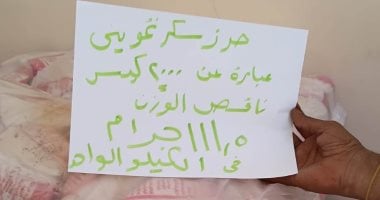 حرز سكر تمويني
عبارة عن ٢٠٠٠ كيس
ناقص الوزن
١١١,٥ جرام
في الكيلو الواحد